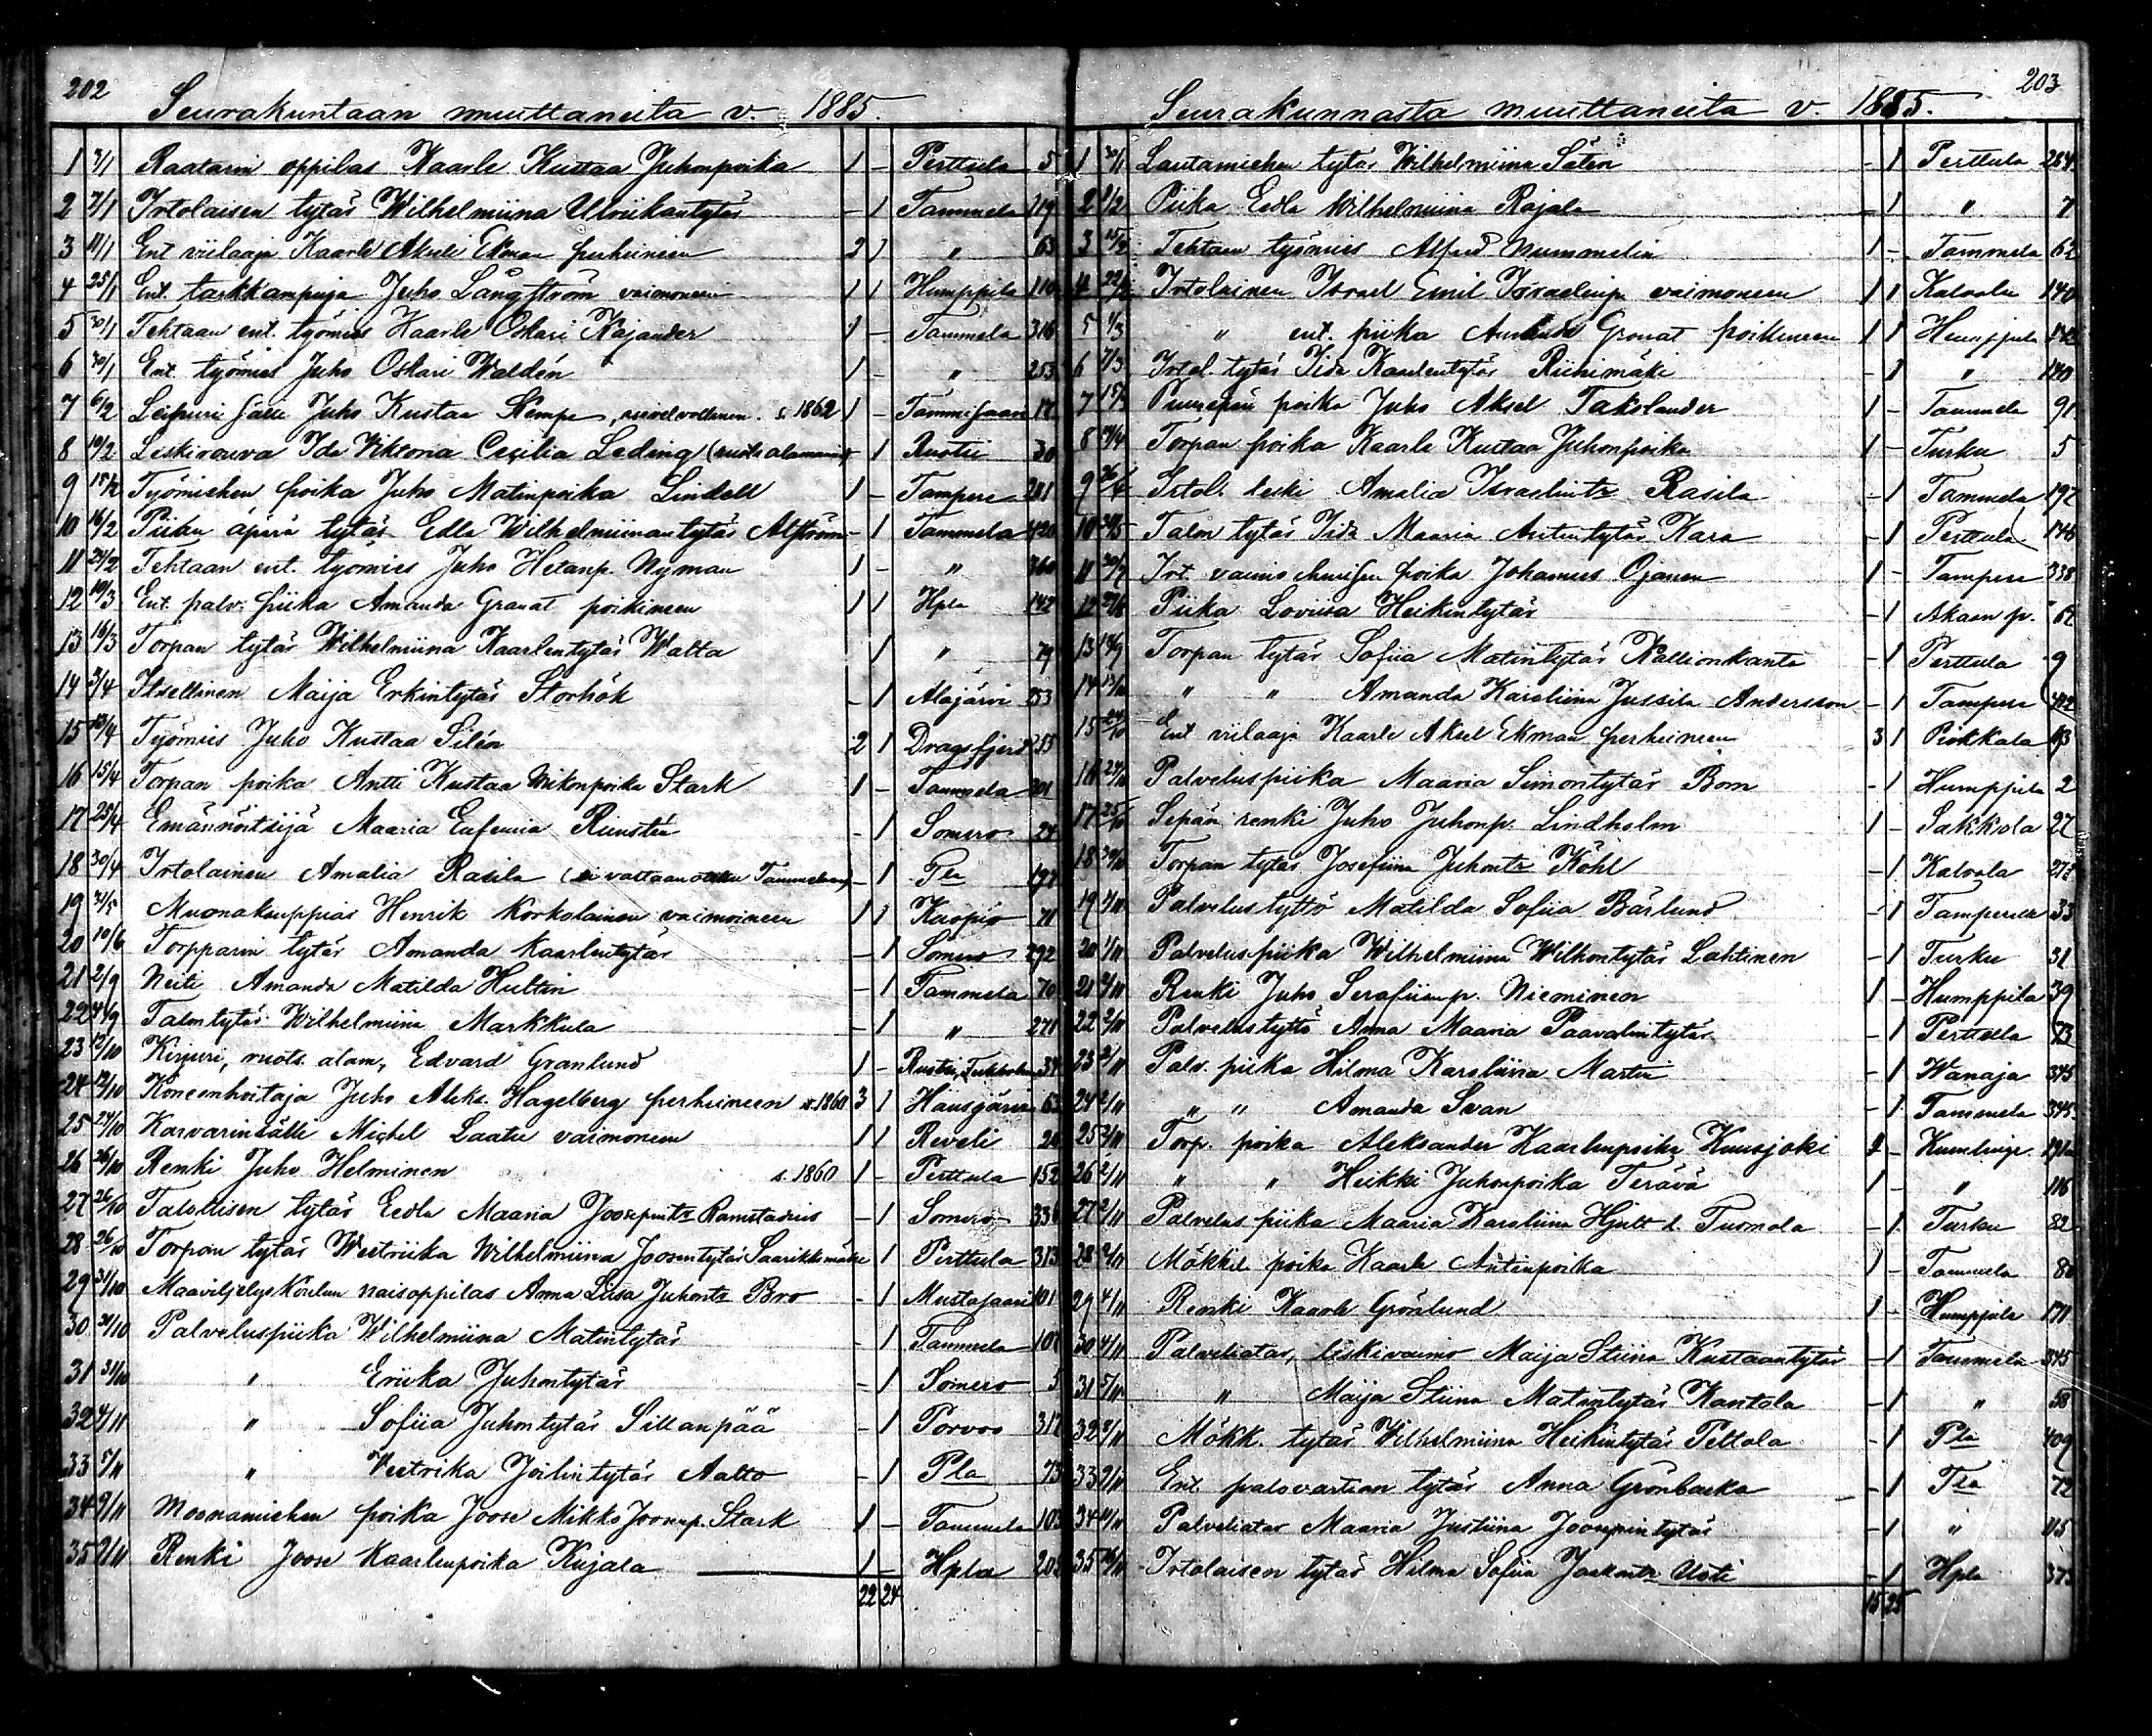 202
Seurakuntaan muuttaneita v. 1885.
1 3/1 Raatarin oppilas Kaarle Kustaa Juhonpoika 1 - Perttula 5
2 7/1 Irtolaisen tytär Wilhelmiina Ulriikantytär - 1 Tammela 119
3 11/1 Ent viilaaja Kaarle Akseli Ekman perheineen 2 1 " 63
4 25/1 Ent. tarkkampuja Juho Långström vaimoneen 1 1 Humppila 110
5 30/1 Tehtaan ent. työmies Kaarle Oskari Kajander 1 - Tammela 316
6 30/1 Ent. työmies Juho Oskari Waldén 1 - " 253
7 6/2 Leipuri sälli Juho Kustaa Kempe, s. 1862 1 - Tammisaari
8 10/2 Leskirouva Ida Viktoria Cecilia Leding - 1 Rustii 30
9 15/2 Työmiehen poika Juho Matinpoika Lindell 1 - Tampere 281
10 16/2 Piian äpärä tytär Edla Wilhelmiinantytär Alström - 1 Tammela 420
11 24/2 Tehtaan ent. työmies Juho Hetanp. Nyman 1 - " 360
12 10/3 Ent. palv. piika Amanda Granat poikineen 1 1 Hpla 142
13 16/3 Torpan tytär Wilhelmiina Kaarlentytär Walta 1 " 79
14 3/4 Itsellinen Maija Erkintytär Storhök - 1 Alajärvi 253
15 13/4 Työmies Juho Kustaa Silén 2 1 Dragsfjerd 255
16 15/4 Torpan poika Antti Kustaa Wikonpoika Stark 1 - Tammela 201
17 25/4 Emännöitsijä Maaria Eufemia - 1 Somero 24
18 30/4 Irtolainen Amalia Rasila (ei vastaanotettu Tammelaan) - 1 Tla 197
19 31/5 Muonakauppias Henrik Korkolainen vaimoineen 1 1 Kuopio 71
20 10/6 Torpparin tytär Amanda Kaarlentytär - 1 Somero 292
21 2/9 Neiti Amanda Matilda Hultin - 1 Tammela 70
22 4/9 Talon tytär Wilhelmiina Markkula - 1 " 271
23 12/10 Kirjuri, ruots. alam, Edvard Granlund 1 - Rustii, Tukholma 34
24 12/10 Koneenhoitaja Juho Aleks. Hagelberg perheineen s. 1860 3 1 Hausjärvi 63
25 24/10 Karvarinsälli Michel Laatu vaimoneen 1 1 Reveli 20
26 26/10 Renki Juho Helminen s. 1860 1 - Perttula 152
27 26/10 Talollisen tytär Eedla Maaria Joosepintr Ramstadius - 1 Somero 336
28 26/10 Torpan tytär Westriika Wilhelmiina Joosentytär Saarikkomäki 1 Perttula 313
29 31/10 Maaviljelyskoulun naisoppilas Anna Liisa Juhontr Bro - 1 Mustasaari 101
30 31/10 Palveluspiika Wilhelmiina Matintytär - 1 Tammela 107
31 31/10 " Eriika Juhontytär - 1 Somero 5
32 4/11 " Sofiia Juhontytär Sillanpää - 1 Porvoo 317
33 5/11 " Vestrika Joilintytär Aalto - 1 Pla 73
34 9/11 Moonamiehen poika Joose Mikko Joonp. Stark 1 - Tammela 103
35 9/11 Renki Joose Kaarlenpoika Kujala 1 - Hpla 203
22 24
203
Seurakunnasta muuttaneita v. 1885.
1 30/1 Lautamiehen tytär Wilhelmiina Sáten - 1 Perttula 284
2 2/2 Piika Eedla Wilhelmiina Rajala - 1 " 7
3 15/2 Tehtaan työmies Alfred Nummelin 1 - Tammela 62
4 22/2 Irtolainen Israel Emil Israelinp. vaimoneen 1 1 Kalvola 140
5 1/3 " ent. piika Amanda Granat poikineen 1 1 Humppila 142
6 7/3 Irtol. tytär Iida Kaarlentytär Riihimäki - 1 " 140
7 15/3 Puusepän poika Juho Aksel Takolander 1 - Tammela 91
8 Torpan poika Kaarle Kustaa Juhonpoika 1 - Turku 5
9 26/4 Irtol. leski Amalia Israelintr Rasila - 1 Tammela 197
10 Talon tytär Iida Maaria Antintytär Kara - 1 Perttula 146
11 30/7 Irt. vaimo poika Johannes Ojanen 1 - Tampere 338
12 Piika Loviisa Heikintytär - 1 Akaan p. 62
13 14/9 Torpan tytär Sofiia Matintytär Kallionkanta - 1 Perttula 9
14 13/10 " " Amanda Karoliina Jussila Andersson - 1 Tampere 402
15 24/10 Ent viilaaja Kaarle Aksel Ekman perheineen 3 1 Pirkkala 63
16 24/10 Palveluspiika Maaria Simontytär Bom - 1 Humppila 2
17 25/10 Sepän renki Juho Juhonp. Lindholm 1 - Sakkola 27
18 30/10 Torpan tytär Josefiina Juhontr Köhl - 1 Kalvola 27
19 1/11 Palvelustyttö Matilda Sofiia Bärlund - 1 Tampere 33
20 1/11 Palveluspiika Wilhelmiina Wilhontytär Lahtinen - 1 Turku 31
21 2/11 Renki Juho Serafiinp. Nieminen 1 - Humppila 39
22 2/11 Palvelustyttö Anna Maaria Paavalintytär - 1 Perttula 73
23 2/11 Palv. piika Hilma Karoliina Martin - 1 Wanaja 345
24 2/11 " " Amanda Svan - 1 Tammela 345
25 2/11 Torp. poika Aleksander Kaarlenpoika Kuusjoki 1 - Kumlinge
26 2/11 " " Heikki Juhonpoika Terävä 1 - " 116
27 2/11 Palvelus piika Maaria Karoliina Hjelt l. Tuomola - 1 Turku 82
28 2/11 Mökkil. poika Kaarle Antinpoika 1 - Tammela 80
29 4/11 Renki Kaarle Grönlund 1 - Humppila 171
30 4/11 Palveliatar, leskivaimo Maija Stiina Kustaantytär - 1 Tammela 345
31 5/11 " Maija Stiina Matintytär Kantola - 1 " 58
32 Mökk. tytär Wilhelmiina Heikintytär Peltola - 1 Pla 409
33 9/11 Ent palovartian tytär Anna Grönbacka - 1 Tla 72
34 Palveliatar Maaria Justiina Joosepintytär - 1 " 115
35 Irtolaisen tytär Hilma Sofiia Uoti - 1 Hpla 373
15 25